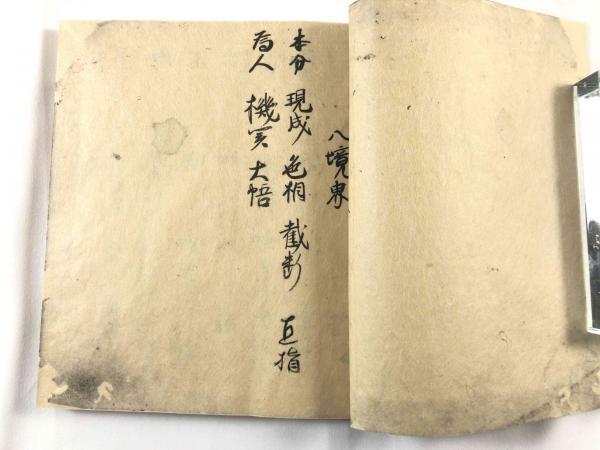 八境界
本分 現成 色相 截断 直指
為人 機关 大悟